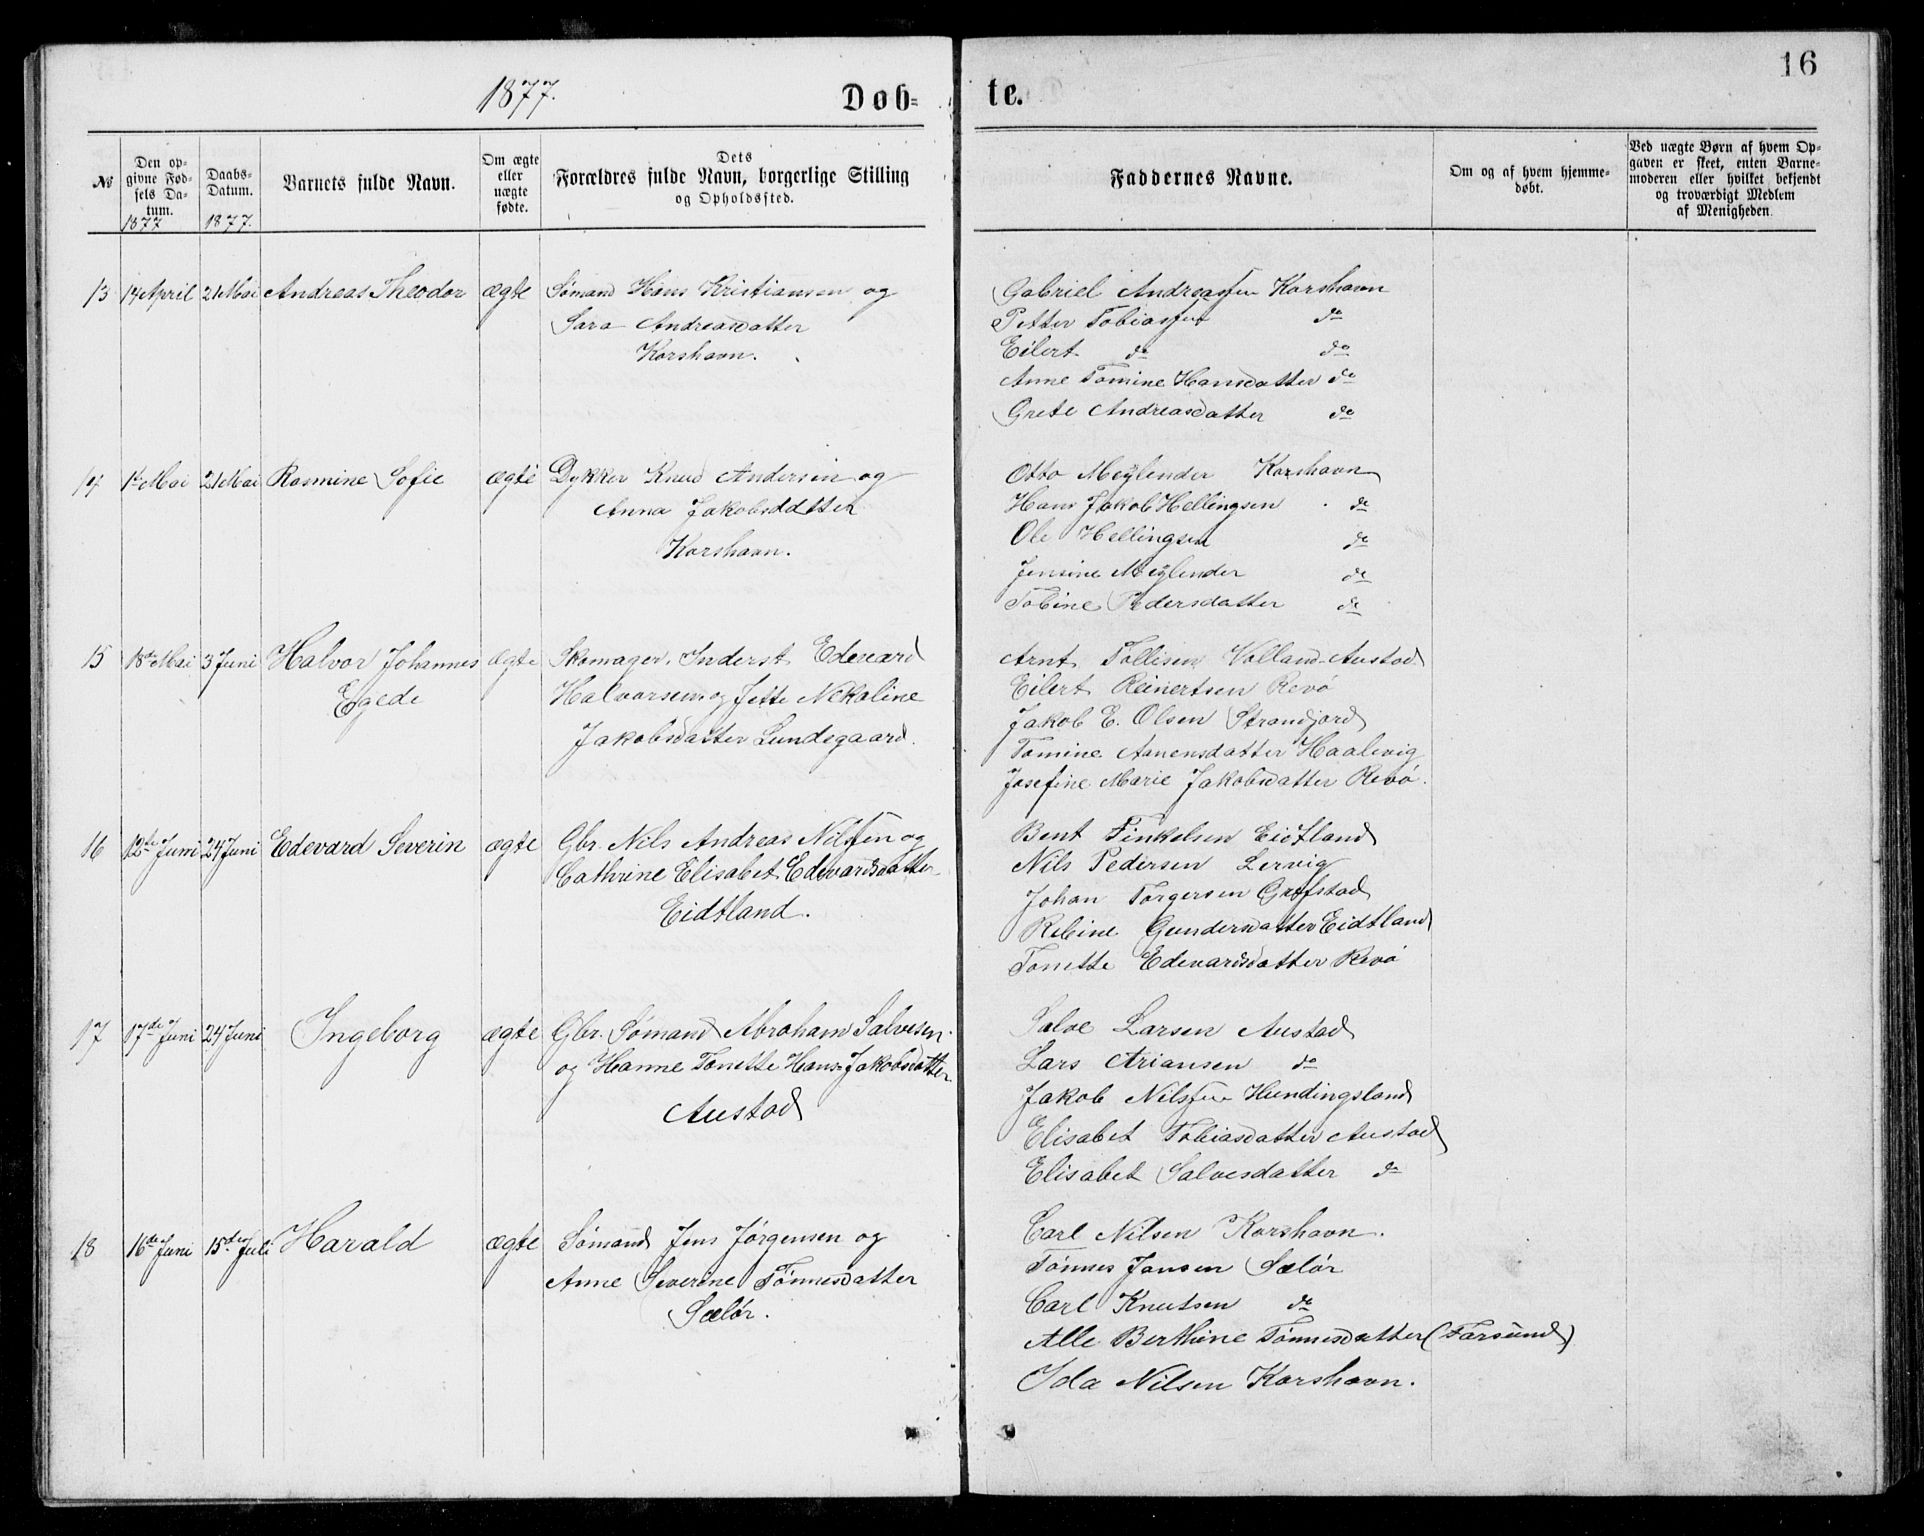 16
1877.
Døbte.
№
Den opgivne Fødsels Datum.
1877
Daabs-Datum.
1877.
Barnets fulde Navn.
Om ægte eller uægte fødte.
Dets
Forældres fulde Navn, borgerlige Stilling
og Opholdssted.
Faddernes Navne.
Om og af hvem hjemmedøbt.
Ved uægte Børn af hvem Opgaven er skeet, enten Barnemoderen eller hvilket bekjendt og troværdigt Medlem af Menigheden.
13 14 April 21 Mai Andreas Theodor ægte Sømand Hans Kristiansen og
Sara Andreasdatter
Korshavn.
Gabriel Andreassen Korshavn
Petter Tobiassen do
Eilert do do
Anne Tomine Hansdatter do
Grete Andreasdatter do
14 1te Mai 21 Mai Rasmine Sofie ægte Dykker Knud Andersen og
Anna Jakobsdatter
Korshavn.
Otto Meylender Korshavn
Hans Jakob Hellingsen do
Ole Hellingsen do
Jensine Meylender do
Tobine Pedersdatter do
15 18de Mai 3 Juni Halvor Johannes ægte Skomager, Inderst Edevard
Egede Halvorsen og Jette Nekoline
Jakobsdatter Lundegaard.
Arnt Tollisen Volland Austad
Eilert Reinertsen Revø
Jakob E. Olsen Strandjord
Tomine Aanensdatter Haalevig
Josefine Marie Jakobsdatter Revø.
16 12te Juni 24 Juni Edevard Severin ægte Gbr. Nils Andreas Nilssen og
Cathrine Elisabet Edevardsdatter
Eidtland.
Bent Finkelsen Eidtland
Nils Pedersen Lervig
Johan Torgersen Grøfstad
Rebine Gundersdatter Eidtland
Tonette Edevardsdatter Revø
17 17de Juni 24 Juni Ingeborg ægte Gbr. Sømand Abraham Salvesen
og Hanne Tonette Hans-Jakobsdatter
Austad
Salve Larsen Austad
Lars Ariansen do
Jakob Nilssen Hundingsland
Elisabet Tobiasdatter Austad
Elisabet Salvesdatter do
18 16de Juni 15de Juli Harald ægte Sømand Jens Jørgensen og
Anne Severine Tønnesdatter
Sælør.
Carl Nilsen Korshavn.
Tønnes Jansen Sælør
Carl Knutsen do
Alle Berthine Tønnesdatter (Farsund)
Ida Nilsen Korshavn.